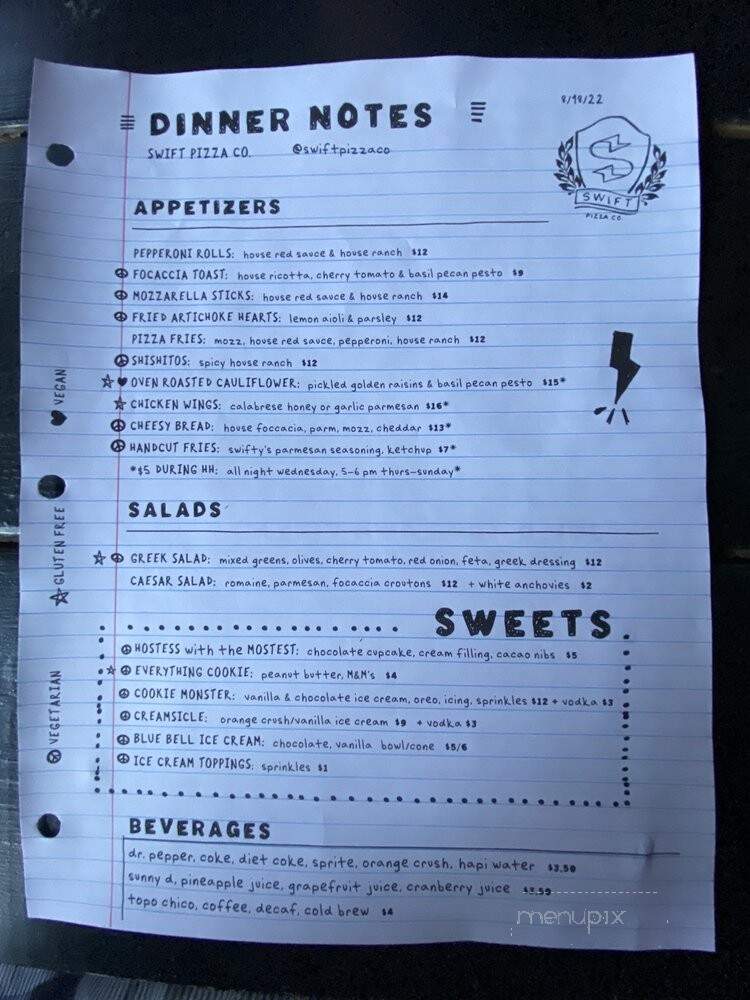 DINNER NOTES
8/18/22
SWIFT PIZZA CO. @swiftpizzaco
S
SWIFT
PIZZA CO.
APPETIZERS
PEPPERONI ROLLS: house red sauce & house ranch $12
FOCACCIA TOAST: house ricotta, cherry tomato & basil pecan pesto $9
MOZZARELLA STICKS: house red sauce & house ranch $14
FRIED ARTICHOKE HEARTS: lemon aioli & parsley $12
PIZZA FRIES: mozz, house red sauce, pepperoni, house ranch $12
SHISHITOS: spicy house ranch $12
☆♥ OVEN ROASTED CAULIFLOWER: pickled golden raisins & basil pecan pesto $15*
☆ CHICKEN WINGS: calabrese honey or garlic parmesan $16*
CHEESY BREAD: house foccacia, parm, mozz, cheddar $13*
HANDCUT FRIES: swifty's parmesan seasoning, ketchup $7*
*$5 DURING HH: all night wednesday, 5-6 pm thurs-sunday*
♥ VEGAN
☆ GLUTEN FREE
VEGETARIAN
SALADS
☆ GREEK SALAD: mixed greens, olives, cherry tomato, red onion, feta, greek dressing $12
CAESAR SALAD: romaine, parmesan, focaccia croutons $12 + white anchovies $2
SWEETS
HOSTESS with the MOSTEST: chocolate cupcake, cream filling, cacao nibs $5
☆ EVERYTHING COOKIE: peanut butter, M&M's $4
COOKIE MONSTER: vanilla & chocolate ice cream, oreo, icing, sprinkles $12 + vodka $3
CREAMSICLE: orange crush/vanilla ice cream $9 + vodka $3
BLUE BELL ICE CREAM: chocolate, vanilla bowl/cone $5/6
ICE CREAM TOPPINGS: sprinkles $1
BEVERAGES
dr. pepper, coke, diet coke, sprite, orange crush, hapi water $3.50
sunny d, pineapple juice, grapefruit juice, cranberry juice $3.50
topo chico, coffee, decaf, cold brew $4
menupix